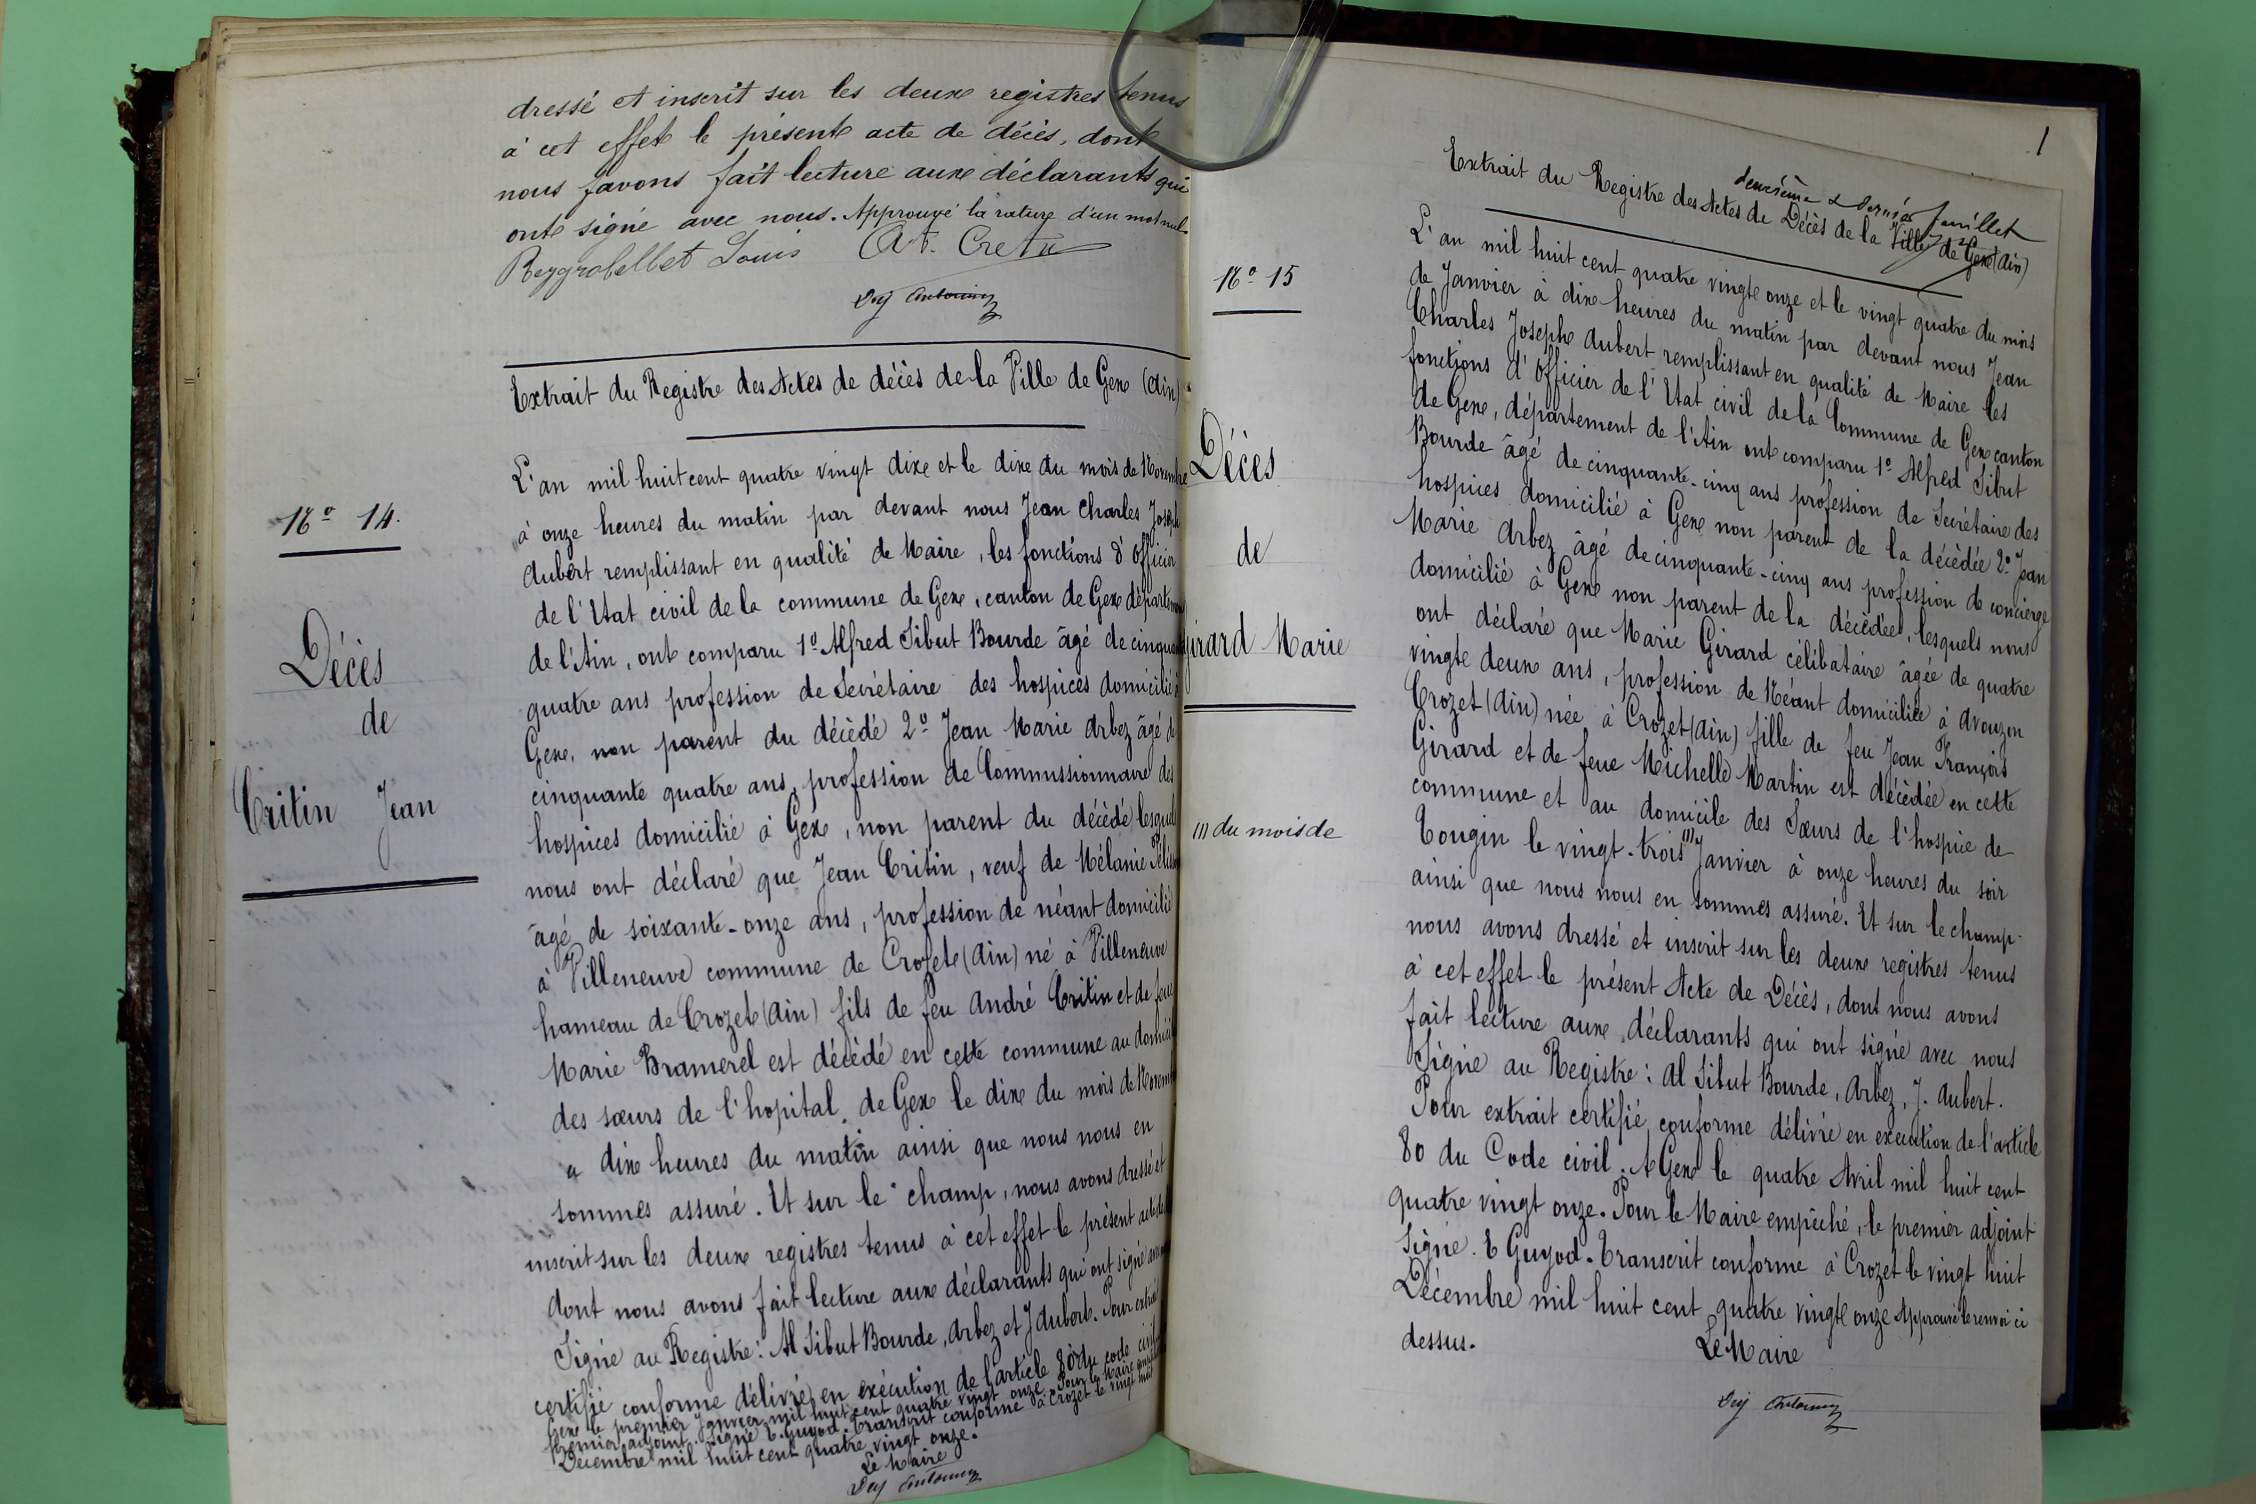 dressé et inscrit sur les deux registres tenus
à cet effet le présent acte de décès, dont
nous favons fait lecture aux déclarants qui
ont signé avec nous. Approuvé la rature d'un mot nul.
Louis
Extrait du Registre des Actes de décès de la Ville de Gex (Ain)
No 14.
Décès
de
Critin Jean
L'an mil huit cent quatre vingt dix et le dix du mois de Novembre
à onze heures du matin par devant nous Jean Charles Joseph
Aubert remplissant en qualité de Maire, les fonctions d'Officier
de l'Etat civil de la commune de Gex, canton de Gex département
de l'Ain, ont comparu 1o Alfred Sibut Bourde âgé de cinquante
quatre ans profession de Secrétaire des hospices domicilié à
Gex, non parent du décédé 2o Jean Marie Arbez âgé de
cinquante quatre ans, profession de Commissionnaire des
hospices domicilié à Gex, non parent du décédé lesquels
nous ont déclaré que Jean Critin, veuf de Mélanie
âgé de soixante-onze ans, profession de néant domicilié
à Villeneuve commune de Crozet (Ain) né à Villeneuve
hameau de Crozet (Ain) fils de feu André Critin et de feue
Marie Bramerel est décédé en cette commune au domicile
des sœurs de l'hopital de Gex le dix du mois de Novembre
à dix heures du matin ainsi que nous nous en
sommes assuré. Et sur le champ, nous avons dressé et
inscrit sur les deux registres tenus à cet effet le présent acte de
dont nous avons fait lecture aux déclarants qui ont signé avec
Signé au Registre: Al Sibut Bourde, Arbez et J Aubert. Pour extrait
certifié conforme délivré en exécution de l'article 80 du code civil
Gex le premier Janvier mil huit cent quatre vingt onze. Pour le Maire empêché
premier adjoint. Signé E. Guyod. Transcrit conforme à Crozet le vingt huit
Décembre mil huit cent quatre vingt onze.
Le Maire
1
deuxième & dernier feuillet
Extrait du Registre des Actes de Décès de la Ville de Gex (Ain)
No 15
Décès
de
Girard Marie
/// du mois de
L'an mil huit cent quatre vingt onze et le vingt quatre du mois
de Janvier à dix heures du matin par devant nous Jean
Charles Joseph Aubert remplissant en qualité de Maire les
fonctions d'Officier de l'Etat civil de la Commune de Gex canton
de Gex, département de l'Ain ont comparu 1o Alfred Sibut
Bourde âgé de cinquante-cinq ans profession de Secrétaire des
hospices domicilié à Gex non parent de la décédée 2o Jean
Marie Arbez âgé de cinquante-cinq ans profession de concierge
domicilié à Gex non parent de la décédée, lesquels nous
ont déclaré que Marie Girard célibataire âgée de quatre
vingt deux ans, profession de Néant domiciliée à Avouzon
Crozet (Ain) née à Crozet (Ain) fille de feu Jean François
Girard et de feue Michelle Martin est décédée en cette
commune et au domicile des Sœurs de l'hospice de
Tougin le vingt-trois /// Janvier à onze heures du soir
ainsi que nous nous en sommes assuré. Et sur le champ
nous avons dressé et inscrit sur les deux registres tenus
à cet effet le présent Acte de Décès, dont nous avons
fait lecture aux déclarants qui ont signé avec nous
Signé au Registre: Al Sibut Bourde, Arbez, J. Aubert.
Pour extrait certifié conforme délivré en execution de l'article
80 du Code civil. A Gex le quatre Avril mil huit cent
quatre vingt onze. Pour le Maire empêché, le premier adjoint
Signé. E Guyod. Transcrit conforme à Crozet le vingt huit
Décembre mil huit cent quatre vingt onze Approuvé le renvoi ci
dessus.
Le Maire